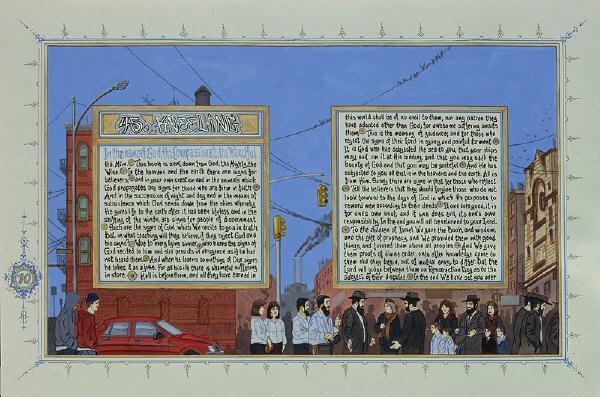 45. KNEELING
In the name of God, the Compassionate, the Merciful
Ha Mim. This book is sent down from God, the Mighty, the
Wise. In the heavens and the earth there are signs for
believers. And in your own creation and in the animals which
God propagates are signs for those who are firm in faith.
And in the succession of night and day, and in the means of
sustenance which God sends down from the skies whereby
He gives life to the earth after it has been lifeless, and in the
shifting of the winds, are signs for people of discernment.
Such are the signs of God, which We recite to you in truth.
But in what teaching will they believe, if they reject God and
his signs? Woe to every lying sinner, who hears the signs of
God recited to him and still persists in arrogance as if he had
not heard them. And when he learns something of Our signs
he takes it as a joke. For all such there is shameful suffering
in store. Hell is before them, and all they have earned in
this world shall be of no avail to them, nor any patrons they
have adopted other than God; for awesome suffering awaits
them. This is the meaning of guidance; and for those who
reject the signs of their Lord is and painful torment.
It is God who has subjected the sea to you that your ships
may sail on it at His bidding, and that you may seek the
bounty of God and that you may be grateful. And He has
subjected to you all that is in the heavens and the earth. All is
from Him. Surely there are signs in that for those who reflect.
Tell the believers that they should forgive those who do not
look forward to the days of God in which He purposes to
reward men according to their deeds. If one does good, it is
for one's own soul, and if one does evil, it's one's own
responsibility. In the end you will all be returned to your Lord.
To the children of Israel We gave the Book, and wisdom,
and the gift of prophecy, and We provided them with good
things, and favored them above all peoples. And We gave
them proofs of divine order. Only after knowledge came to
them did they begin, out of mutual envy, to differ. But the
Lord will judge between them on Resurrection Day as to the
subject of their dispute. In the end We have set you over